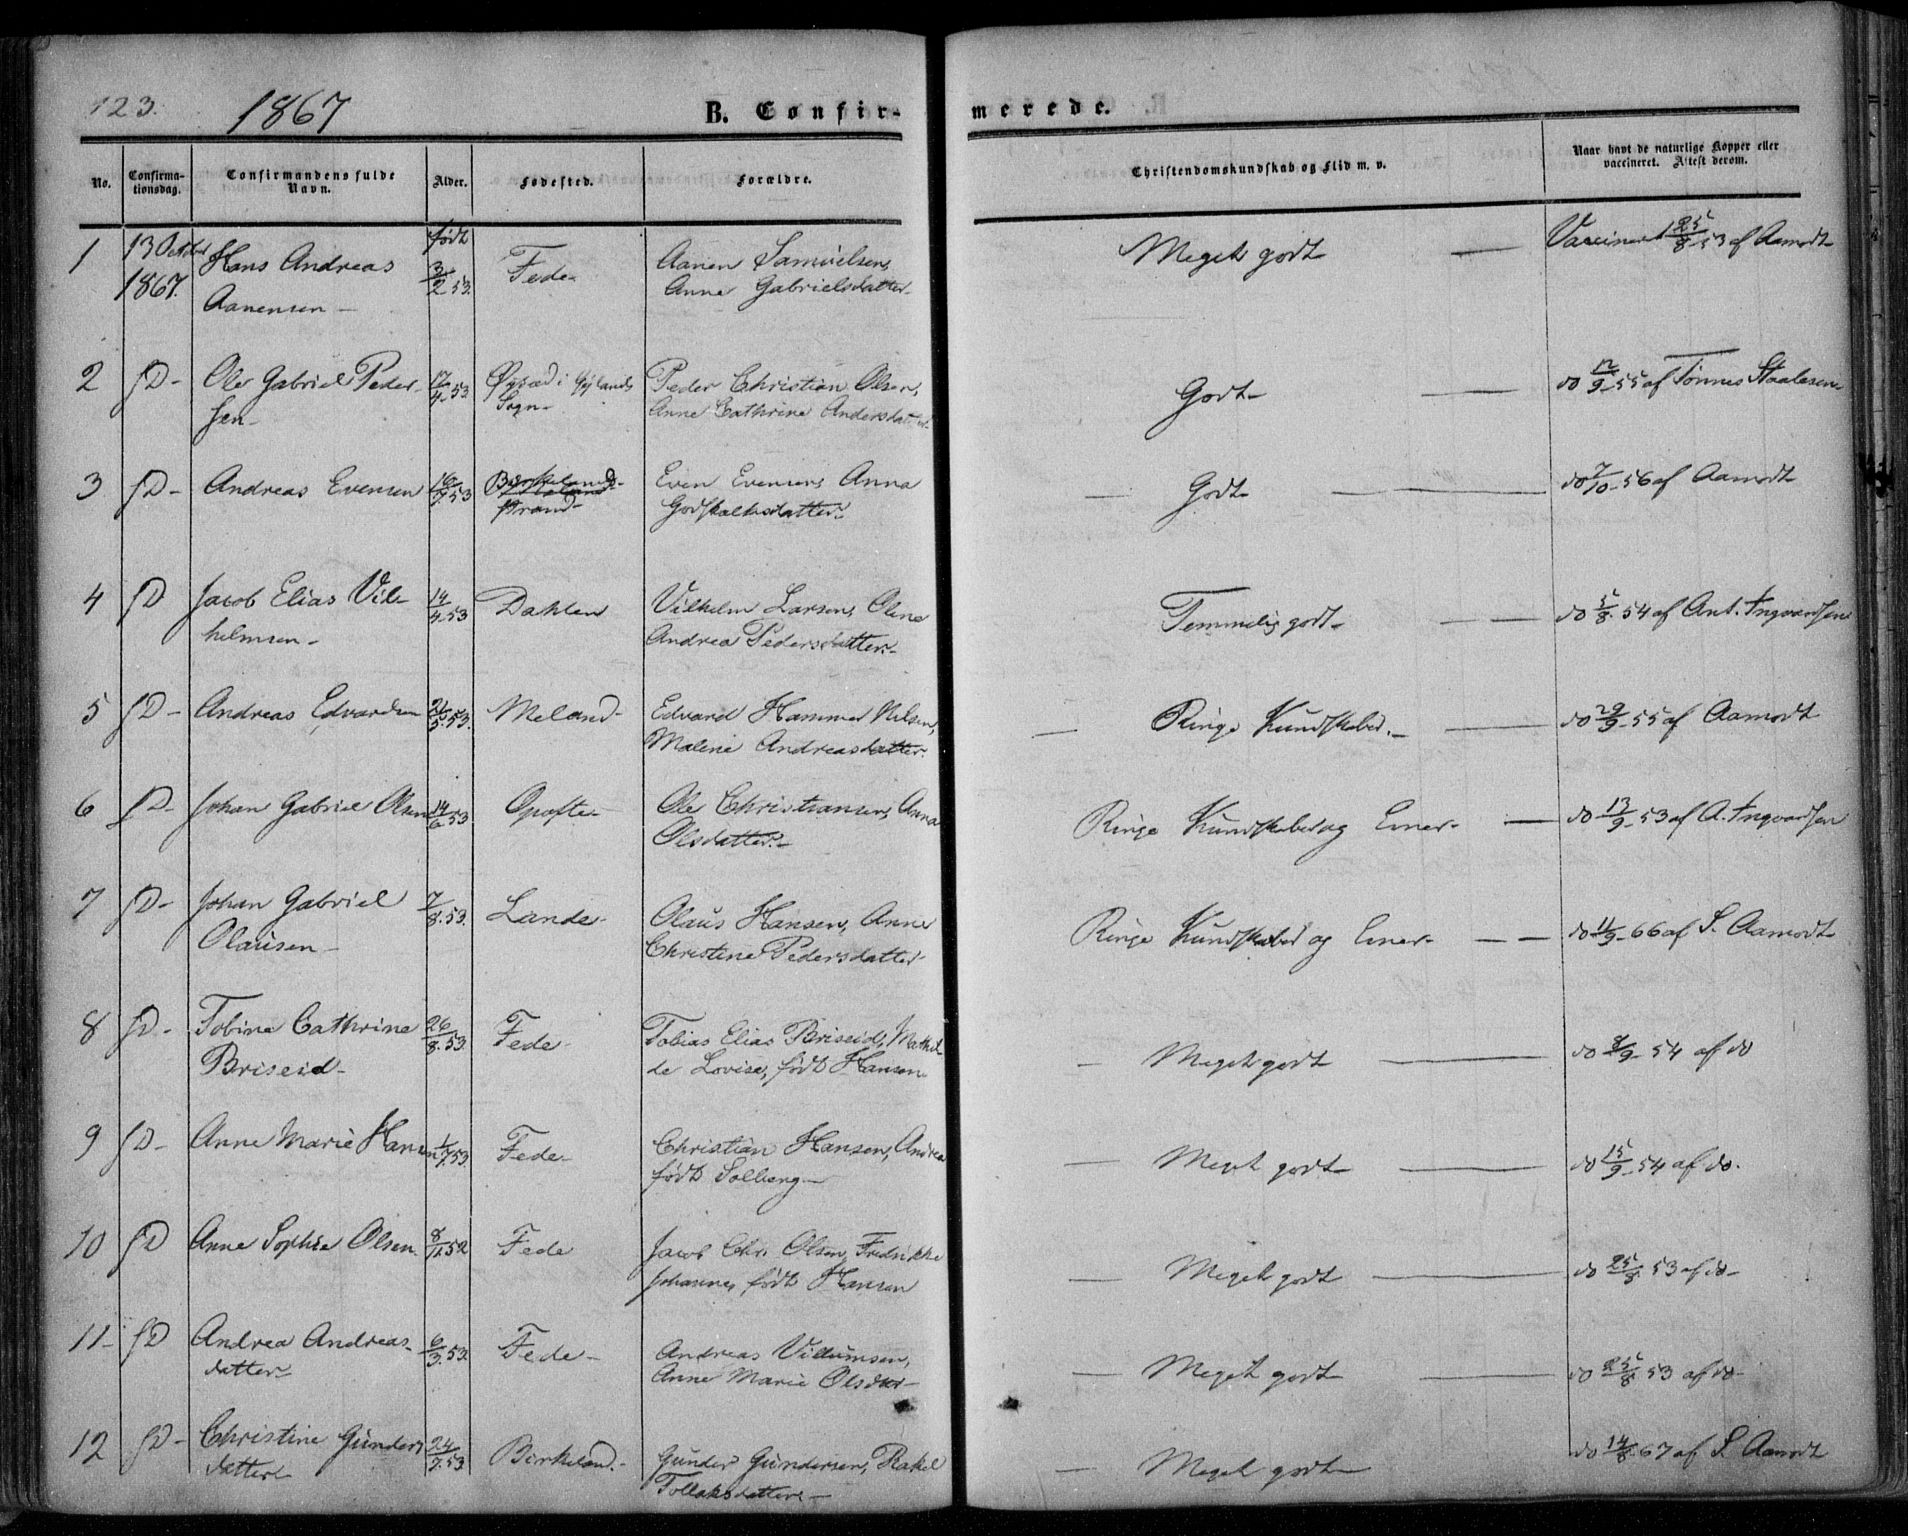 123.
1867
B. Confir-
merede.
No.
Confirma-
tionsdag.
Confirmandens fulde
Navn.
Alder.
Fødested.
Forældre.
Christendomskundskab og Flid m. v.
Naar havt de naturlige Kopper eller
vaccineret. Attest derom.
1
13 October
1867.
Hans Andreas
Aanensen
født
3/2 53.
Fede
Aanen Samuelsen,
Anne Gabrielsdatter
Meget godt
Vaccineret 25/8 53 af Aamodt
2
D
Ole Gabriel Peder-
sen
17/4 53
i Gylands
Sogn
Peder Christian Olsen,
Anne Cathrine Andersdatter
Godt
do 12/9 55 af Tønnes Staalesen
3
D
Andreas Evensen
16/7 53
Birkelands-
strand
Even Evensen, Anna
Godskalksdatter
Godt
do 7/10 56 af Aamodt
4
D
Jacob Elias Vil-
helmsen
14/4 53
Dahlen
Vilhelm Larsen, Olene
Andrea Pedersdatter
Temmelig godt
do 5/8 54 af Ant. Ingvardsen
5
D
Andreas Edvardsen
21/5 53.
Meland
Edvard Hammer Nilsen,
Malene Andreasdatter
Ringe Kundskaber.
do 29/9 55 af Aamodt
6
D
Johan Gabriel Olsen
14/6 53
Opofte
Ole Christiansen, Anna
Olsdatter
Ringe Kundskaber og Evner
do 13/9 53 af A. Ingvardsen
7
D
Johan Gabriel
Olausen
7/8 53.
Lande
Olaus Hansen, Anne
Christine Pedersdatter
Ringe Kundskaber og Evner
do 11/9 66 af S. Aamodt
8
D
Tobine Cathrine
Briseid
26/8 53
Fede
Tobias Elias Briseid, Mathil-
de Lovise, født Hansen
Meget godt
do 8/9 54 af do
9
D
Anne Marie Hansen
1/7 53
Fede
Christian Hansen, Andrea
født Solberg
Meget godt
do 15/9 54 af do.
10
D
Anne Sophie Olsen
8/12 52
Fede
Jacob Chr. Olsen, Fredrikke
Johanne, født Hansen
Meget godt
do 25/8 53 af do
11
D
Andrea Andreas-
datter
6/3 53
Fede
Andreas Villumsen,
Anne Marie Olsdtr
Meget godt
do 25/8 53 af do
12
D
Christine Gunders
datter
24/7 53
Birkeland
Gunder Gundersen, Rakel
Tollaksdatter
Meget godt
do 14/8 67 af S. Aamodt